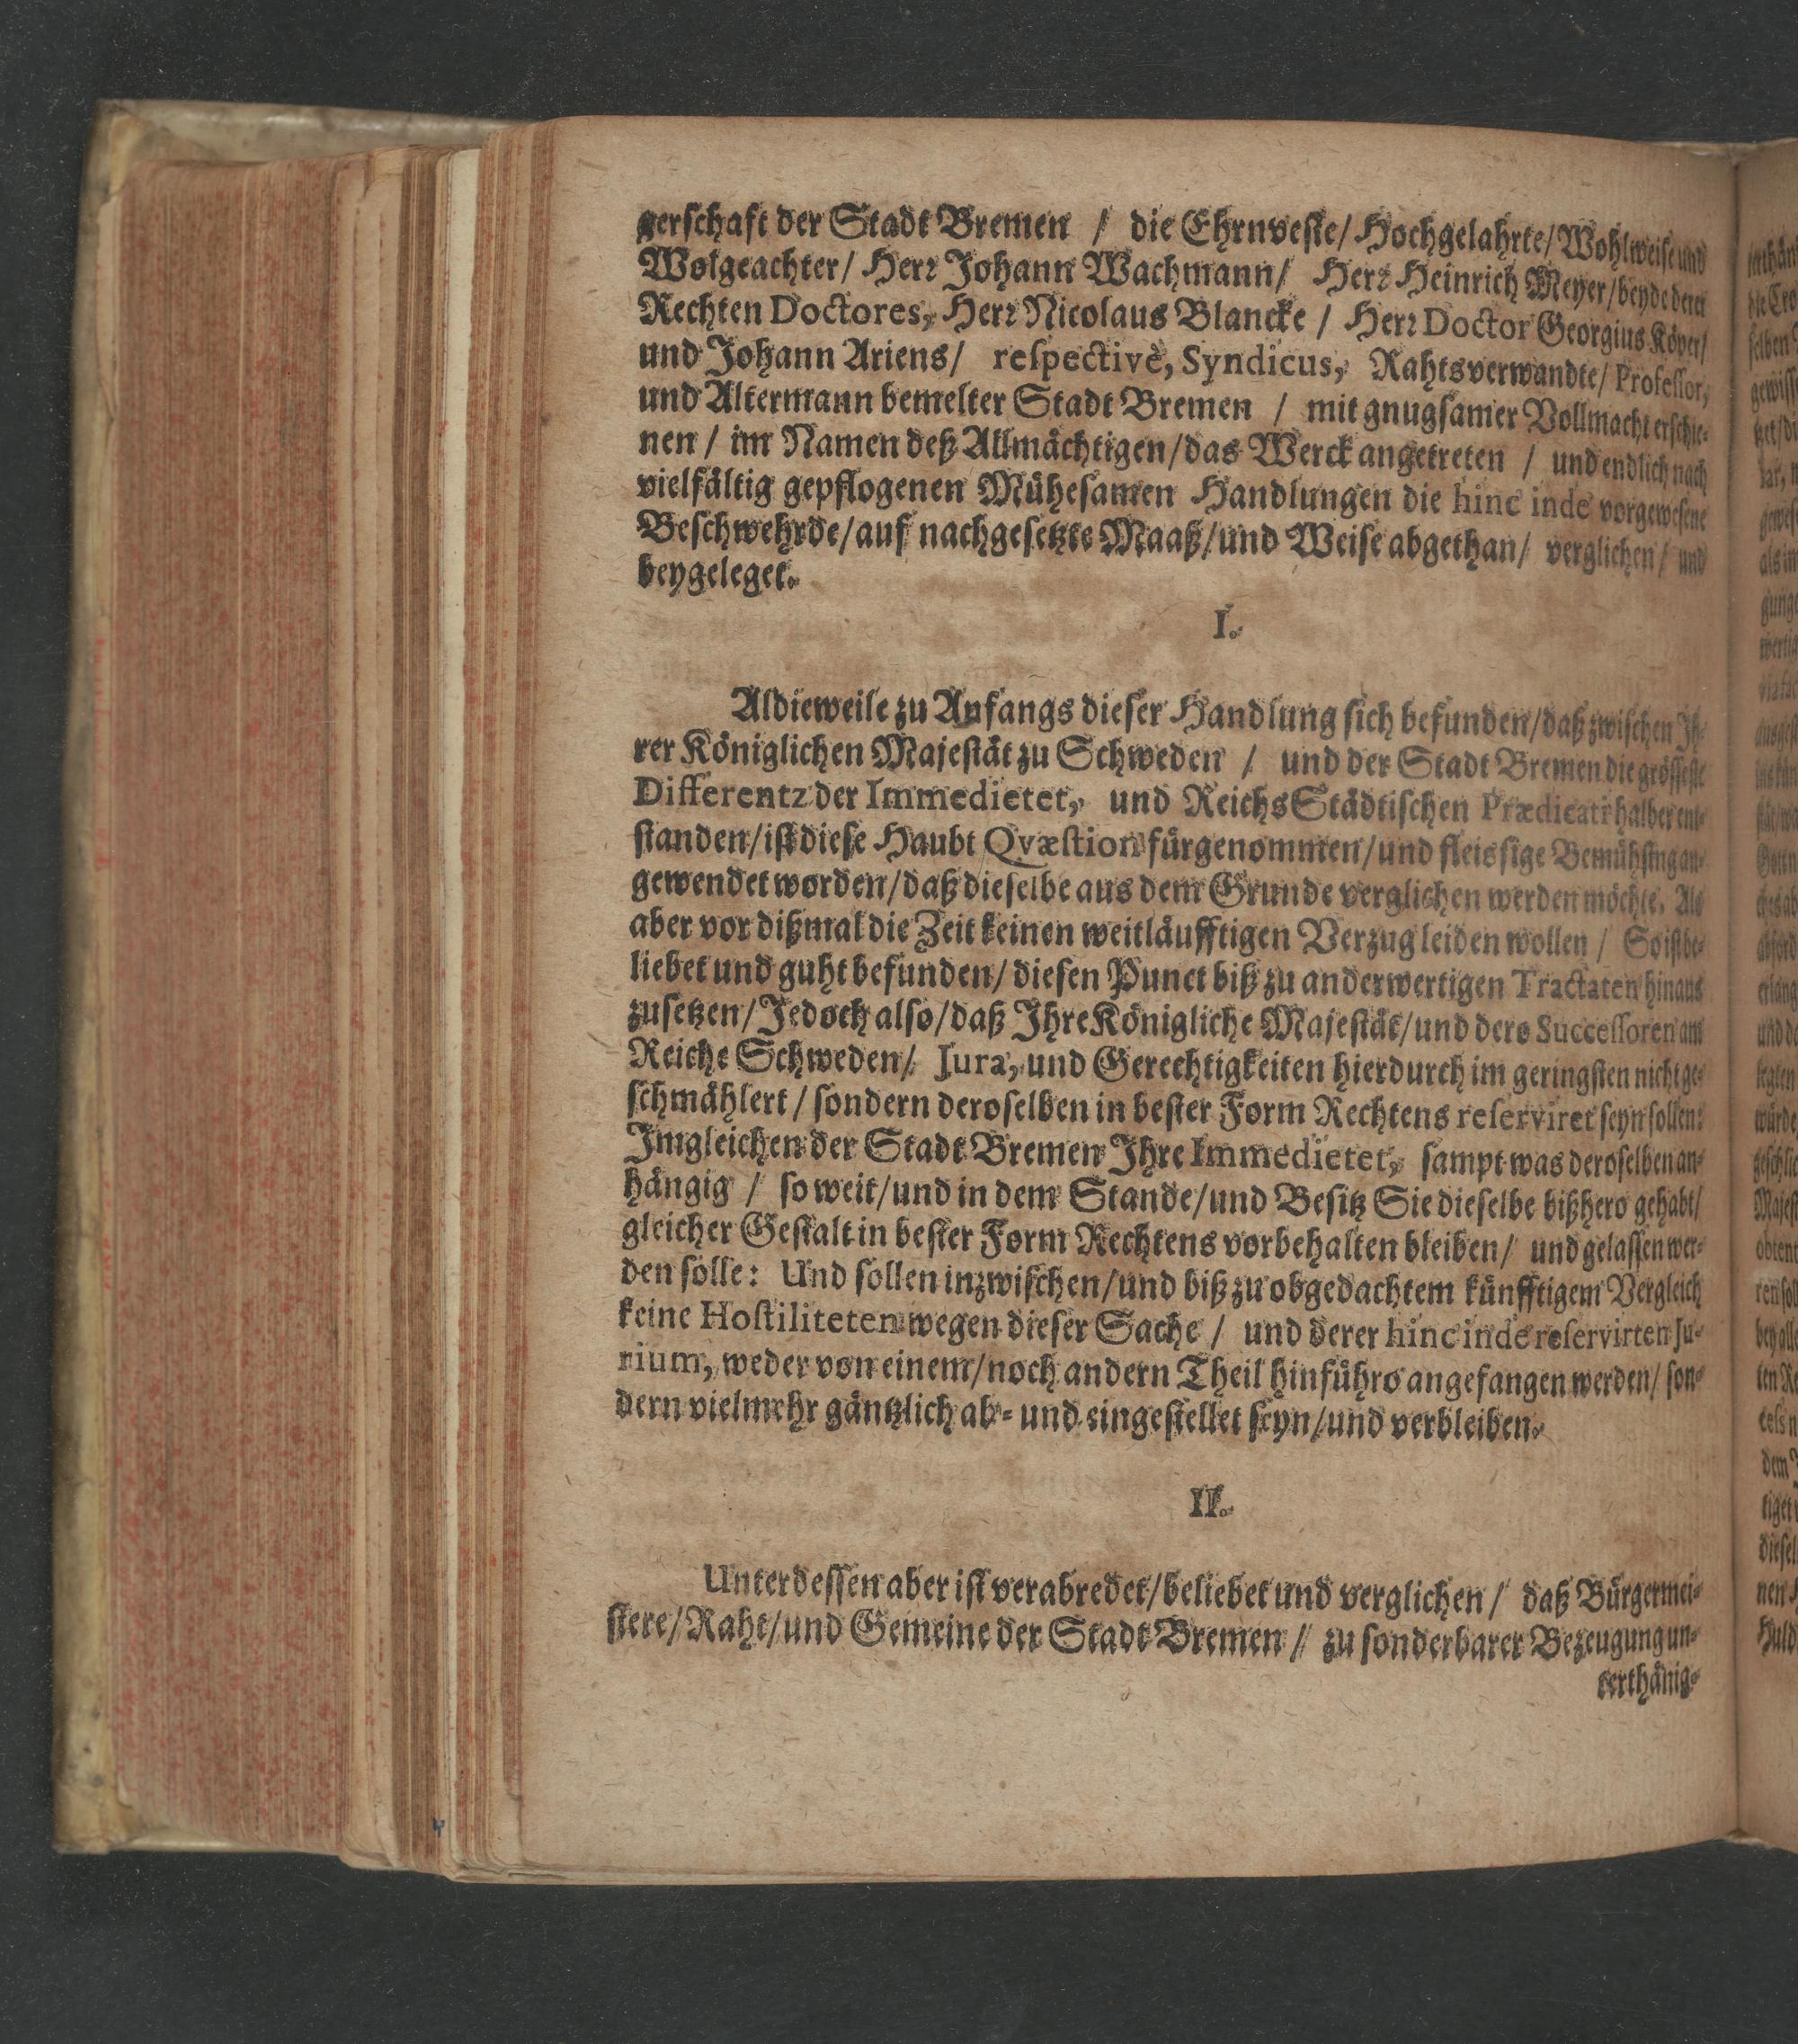 gerschaft der Stadt Bremen / die Ehrnveste/ Hochgelahrte/ Wohlweise und
Wolgeachter/ Herr Johann Wachmann/ Herr Heinrich Meyer/ beyde derer
Rechten Doctores, Herr Nicolaus Blancke / Herr Doctor Georgius Köper/
und Johann Ariens/ respectivè, Syndicus, Rahtsverwandte/ Professor,
und Altermann bemelter Stadt Bremen / mit gnugsamer Vollmacht erschie-
nen / im Namen deß Allmächtigen/ das Werck angetreten / und endlich nach
vielfältig gepflogenen Mühesamen Handlungen die hinc inde vorgewesene
Beschwehrde/ auf nachgesetzte Maaß/ und Weise abgethan/ verglichen/ und
beygeleget.
I.
Aldieweile zu Anfangs dieser Handlung sich befunden/ daß zwischen Ih-
rer Königlichen Majestät zu Schweden / und der Stadt Bremen die grösseste
Differentz der Immedietet, und ReichsStädtischen Prædicati halber ent-
standen/ ist diese Haubt Qvæstion fürgenommen/ und fleissige Bemühung an-
gewendet worden/ daß dieselbe aus dem Grunde verglichen werden möchte. Als
aber vor dißmal die Zeit keinen weitläufftigen Verzug leiden wollen / So ist be-
liebet und guht befunden/ diesen Punct biß zu anderwertigen Tractaten hinaus
zusetzen/ Jedoch also/ daß Ihre Königliche Majestät/ und dero Successoren am
Reiche Schweden/ Jura, und Gerechtigkeiten hierdurch im geringsten nicht ge-
schmählert/ sondern deroselben in bester Form Rechtens reserviret seyn sollen:
Imgleichen der Stadt Bremen Ihre Immedietet, sampt was deroselben an-
hängig / so weit/ und in dem Stande/ und Besitz Sie dieselbe bißhero gehabt/
gleicher Gestalt in bester Form Rechtens vorbehalten bleiben/ und gelassen wer-
den solle: Und sollen inzwischen/ und biß zu obgedachtem künfftigem Vergleich
keine Hostiliteten wegen dieser Sache / und derer hinc inde reservirten Ju-
rium, weder von einem/ noch andern Theil hinführo angefangen werden/ son-
dern vielmehr gäntzlich ab- und eingestellet seyn/ und verbleiben.
II.
Unterdessen aber ist verabredet/ beliebet und verglichen/ daß Bürgermei-
stere/ Raht/ und Gemeine der Stadt Bremen/ zu sonderbarer Bezeugung un-
terthänig-